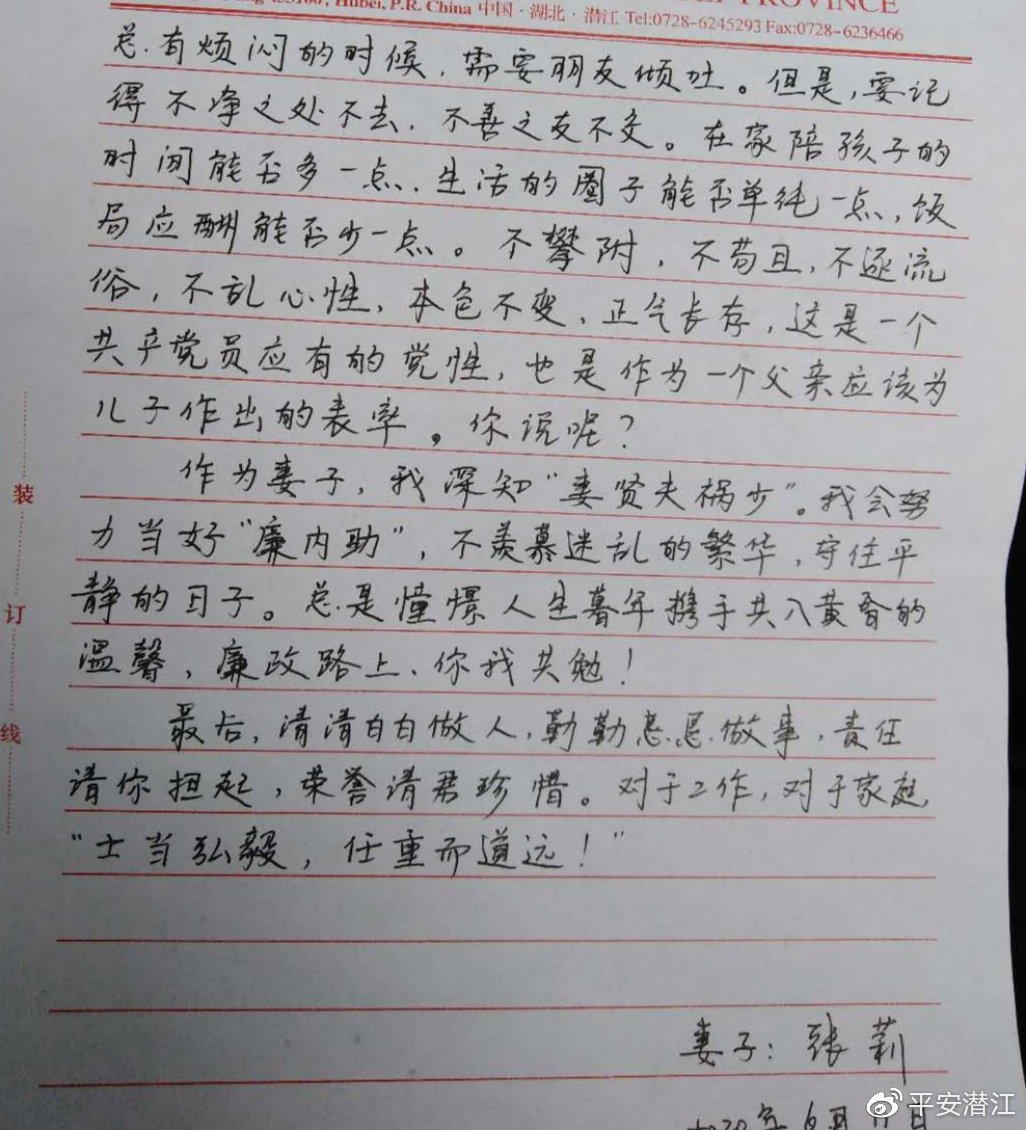 PROVINCE
Hubei, P.R. China 中国·湖北·潜江 Tel:0728-6245293 Fax:0728-6236466
总有烦闷的时候，需要朋友倾吐。但是，要记
得不净之处不去，不善之友不交。在家陪孩子的
时间能否多一点、生活的圈子能否单纯一点，饭
局应酬能否少一点。不攀附，不苟且，不逐流
俗，不乱心性，本色不变、正气长存，这是一个
共产党员应有的党性，也是作为一个父亲应该为
儿子作出的表率。你说呢？
作为妻子，我深知“妻贤夫祸少”。我会努
力当好“廉内助”，不羡慕迷乱的繁华，守住平
静的日子。总是憧憬人生暮年携手共入黄昏的
温馨，廉政路上、你我共勉！
最后，清清白白做人，勤勤恳恳做事，责任
请你担起，荣誉请君珍惜。对于工作，对于家庭，
“士当弘毅，任重而道远！”
妻子：张莉
2020年6月11日
装
订
线
平安潜江